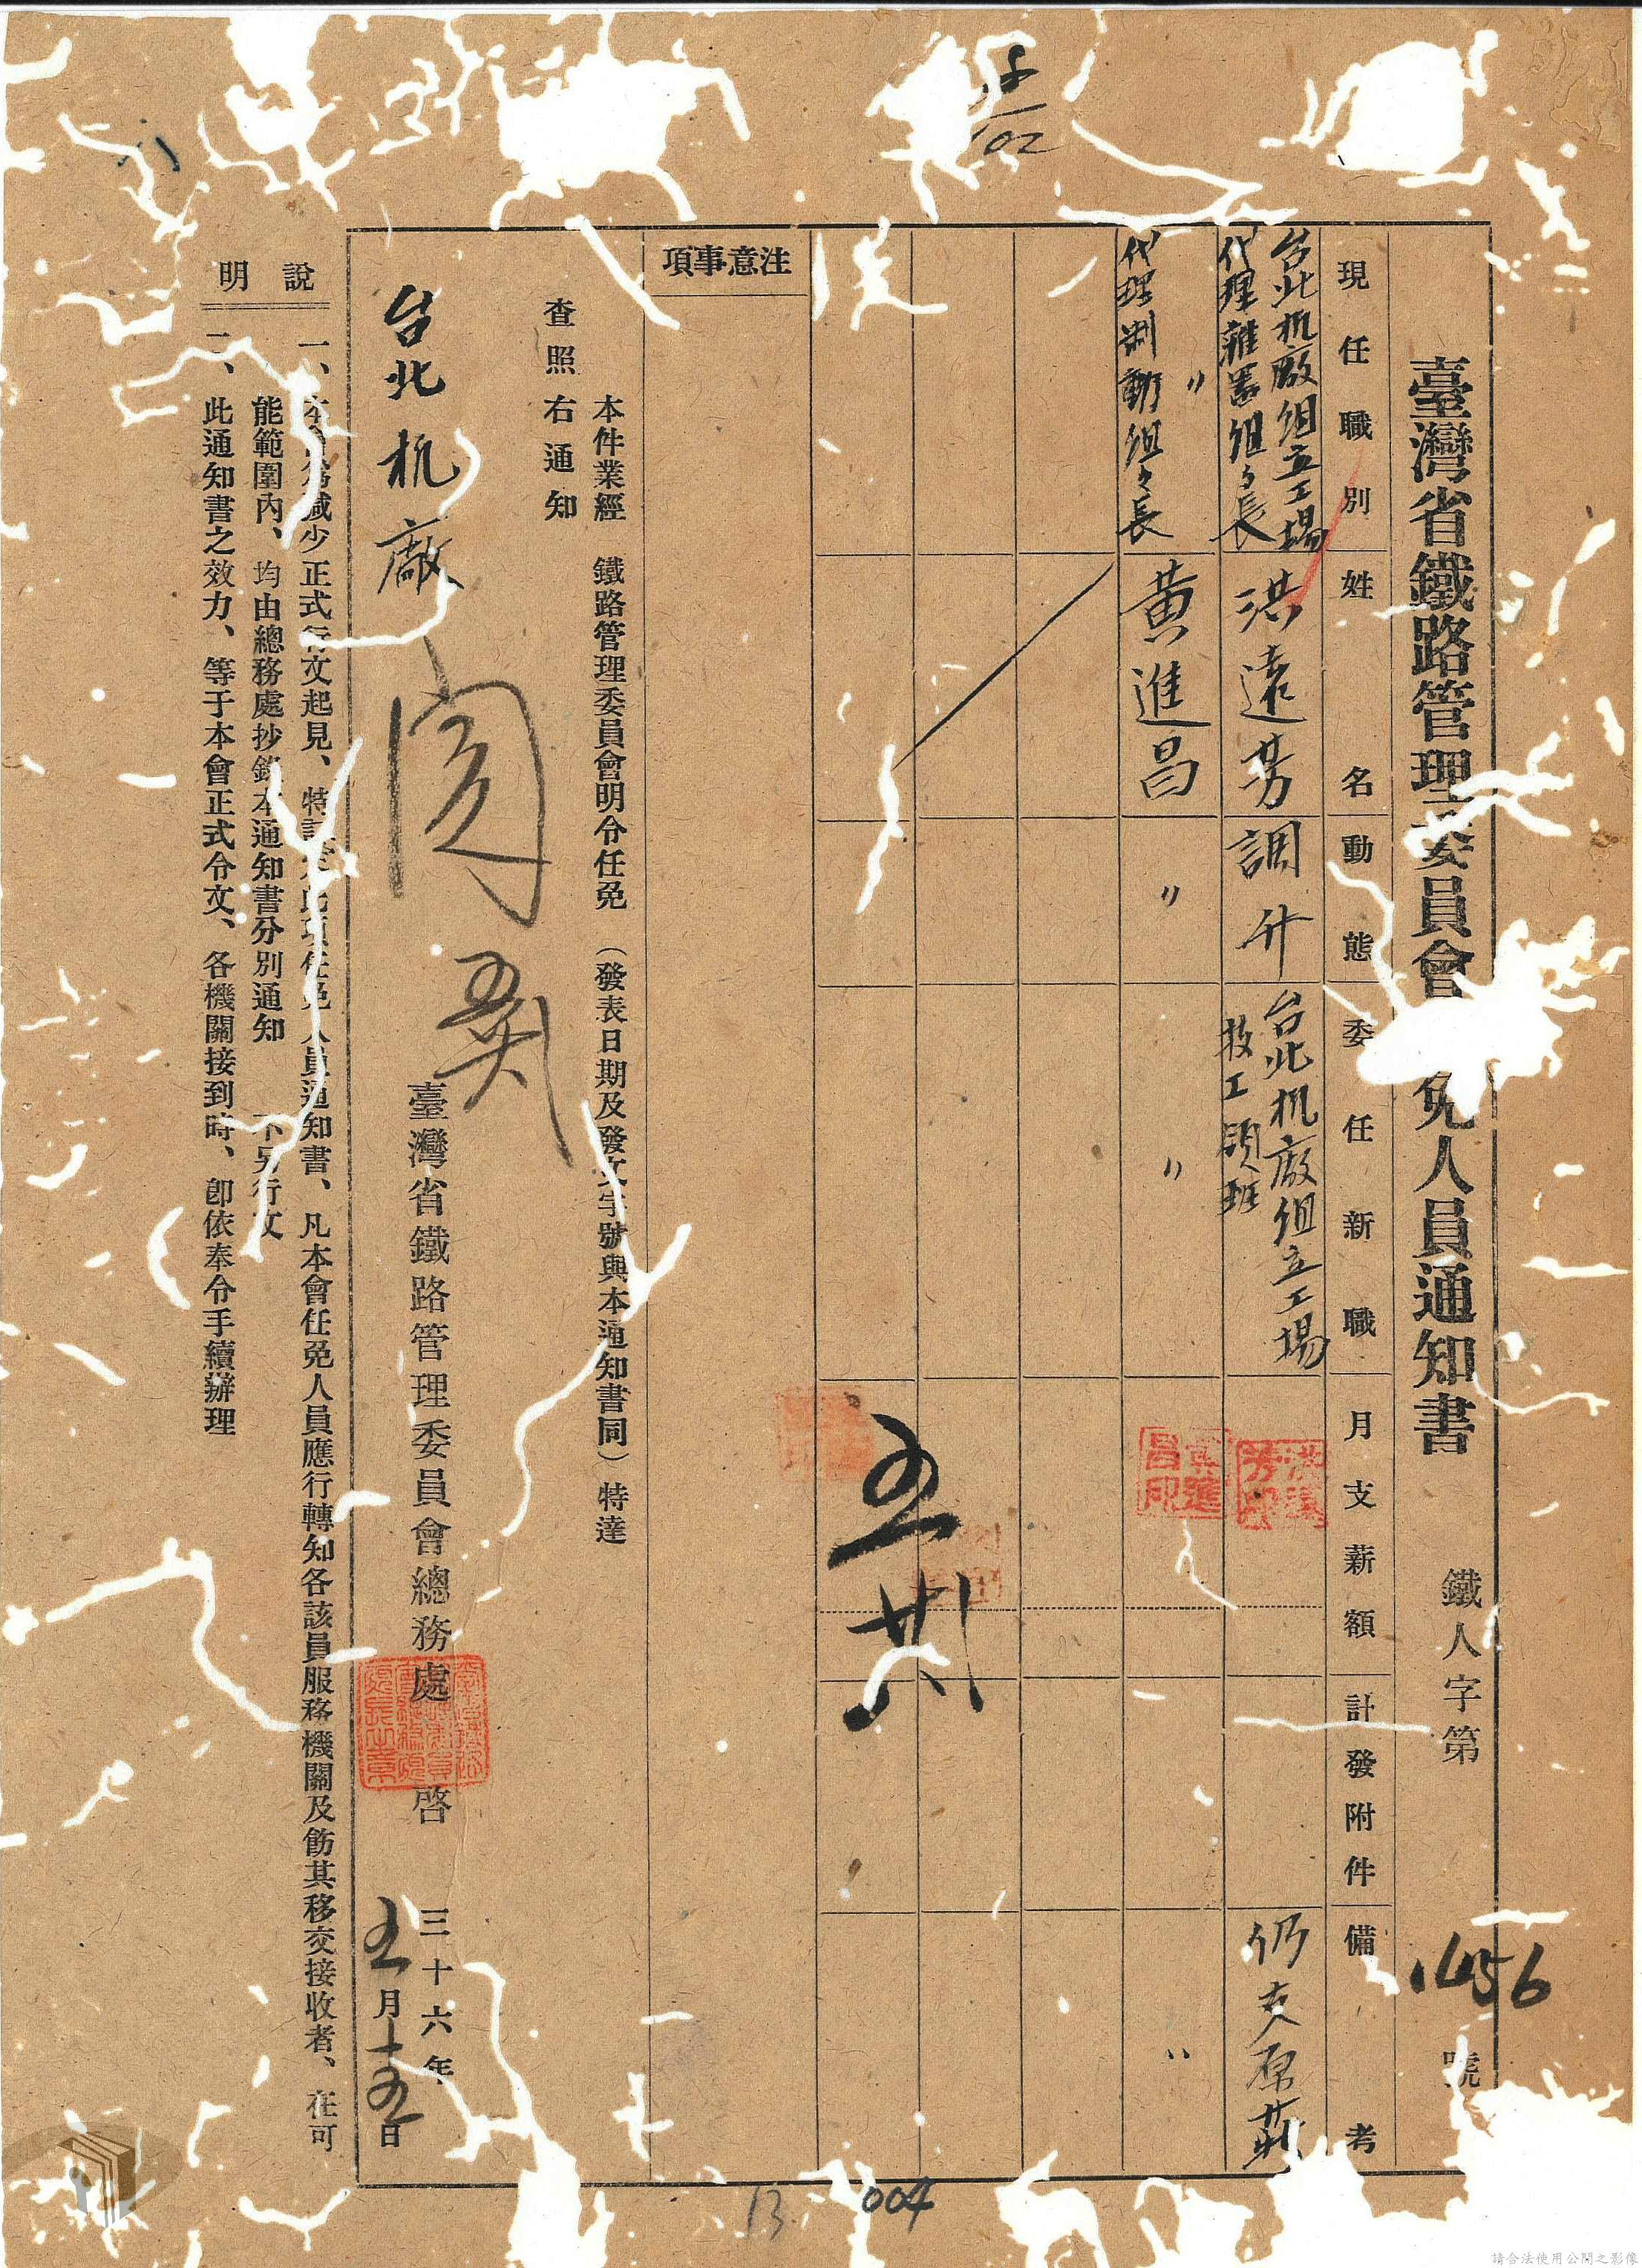 臺灣省鐵路管理委員會 免人員通知書
鐵人字第 1456 號
現任職別
姓名
動態
委任新職
月支薪額
計發附件
備考
台北机廠組立工場
代理雜器組々長
洪遠芳
調升
台北机廠組立工場
技工領班
仍支原薪
〃
代理制動組々長
黃進昌
〃
〃
〃
注意事項
本件業經 鐵路管理委員會明令任免 (發表日期及發文字號與本通知書同) 特達
查照 右通知
台北机廠
臺灣省鐵路管理委員會總務處 啓
三十六年
五月十五日
說明
一、本 為減少正式行文起見、特 此項任免人員通知書、凡本會任免人員應行轉知各該員服務機關及飭其移交接收者、在可
能範圍內、均由總務處抄錄本通知書分別通知 不另行文
二、此通知書之效力、等于本會正式令文、各機關接到時、卽依奉令手續辦理
洪遠芳印
黃進昌印
102
13
004
請合法使用公開之影像